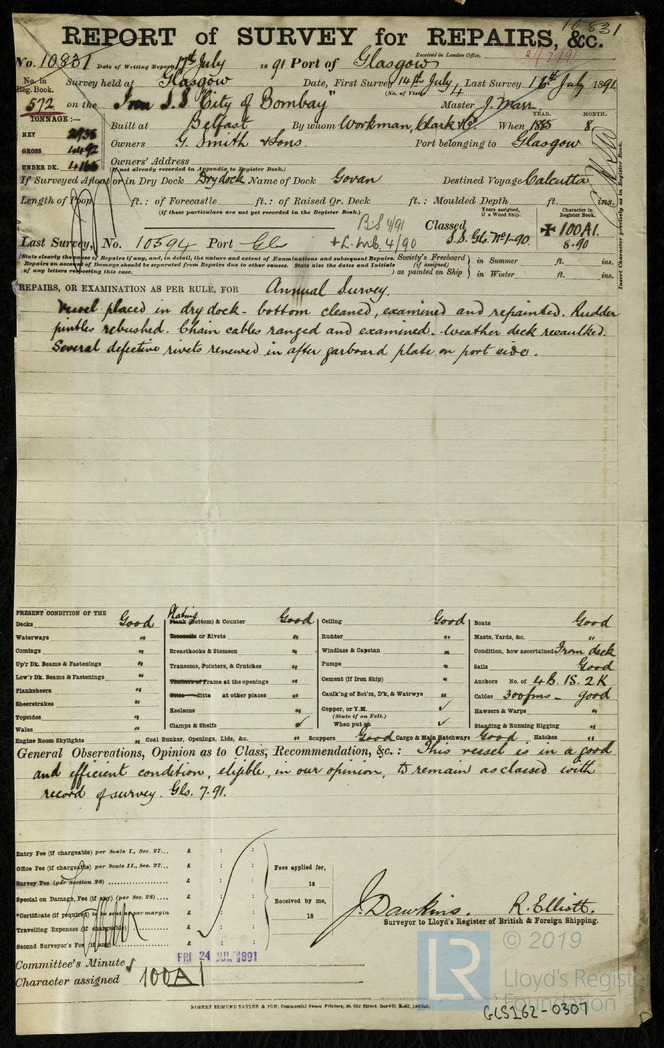 10831
REPORT of SURVEY for REPAIRS, &c.
Received in London Office,
No. 10831 Date of Writing Report 17th July 1891 Port of Glasgow
No. in Reg. Book. Survey held at Glasgow Date, First Survey 14th July Last Survey 16th July 1891.
(No. of Visits 4
572 on the Iron S.S. City of Bombay Master J. Marr
TONNAGE:—
NET 2936
GROSS 4492
UNDER DK. 4166
Built at Belfast By whom Workman, Clark & Co. When 1885 8
YEAR. MONTH.
Owners G. Smith & Sons. Port belonging to Glasgow
Owners' Address
(If not already recorded in Appendix to Register Book.)
If Surveyed Afloat or in Dry Dock Drydock Name of Dock Govan Destined Voyage Calcutta
Length of Poop ft. : of Forecastle ft. : of Raised Qr. Deck ft. : Moulded Depth ft. ins.
(If these particulars are not yet recorded in the Register Book.)
Insert Character precisely as in Register Book.
B.S 4/91
+L.M.C. 4/90
Classed
Years assigned, if a Wood Ship.
Character in Register Book.
S.S. Gls. No. 1-90.
✠ 100A1.
8-90
Last Survey, No. 10394 Port Gls
(State clearly the cause of Repairs if any, and, in detail, the nature and extent of Examinations and subsequent Repairs.
Repairs on account of Damage should be separated from Repairs due to other causes. State also the dates and Initials
of any letters respecting this case.
Society's Freeboard (if assigned) as painted on Ship } in Summer ft. ins.
in Winter ft. ins.
REPAIRS, OR EXAMINATION AS PER RULE, FOR Annual Survey.
Vessel placed in dry dock - bottom cleaned, examined and repainted. Rudder
pintles rebushed. Chain cables ranged and examined. Weather deck recaulked.
Several defective rivets renewed in after garboard plate on port side.
PRESENT CONDITION OF THE
Decks Good
Waterways "
Comings "
Up'r Dk. Beams & Fastenings "
Low'r Dk. Beams & Fastenings "
Planksheers "
Sheerstrakes "
Topsides "
Wales "
Engine Room Skylights "
Plating
Plank (Bottom) & Counter Good
Treenails or Rivets "
Breasthooks & Stemson "
Transoms, Pointers, & Crutches "
Timbers of Frame at the openings "
Ditto ditto at other places "
Keelsons "
Clamps & Shelfs ✓
Coal Bunker, Openings, Lids, &c. "
Ceiling Good
Rudder "
Windlass & Capstan "
Pumps "
Cement (if Iron Ship) "
Caulk'ng of Bot'm, D'k, & Watrwys "
Copper, or Y.M. ✓
(State if on Felt.)
When put on ✓
Scuppers Good Cargo & Main Hatchways Good Hatches "
Boats Good
Masts, Yards, &c. "
Condition, how ascertained From deck
Sails Good
Anchors No. of 4 B. 1S. 2 K
Cables 300 fms - good
Hawsers & Warps "
Standing & Running Rigging "
General Observations, Opinion as to Class, Recommendation, &c.: This vessel is in a good
and efficient condition, eligible, in our opinion, to remain as classed with
record of survey. Gls. 7.91.
Entry Fee (if chargeable) per Scale I., Sec. 27... £ : :
Office Fee (if chargeable) per Scale II., Sec. 27... £ : :
Survey Fee (per Section 28) £ : :
Special on Damage, Fee (if any) (per Sec. 28) £ : :
*Certificate (if required) to be sent as per margin £ : :
Travelling Expenses (if chargeable) £ : :
Second Surveyor's Fee (if any) £ : :
Fees applied for,
18
Received by me,
18
J. Dawkins. R. Elliott.
Surveyor to Lloyd's Register of British & Foreign Shipping.
Committee's Minute FRI 24 JUL 1891
Character assigned 100A1
ROBERT EDMUND TAYLOR & SON, Commercial Steam Printers, 19, Old Street, Goswell Rd., London.
LR © 2019
Lloyd's Register
Foundation
GLS162-0307